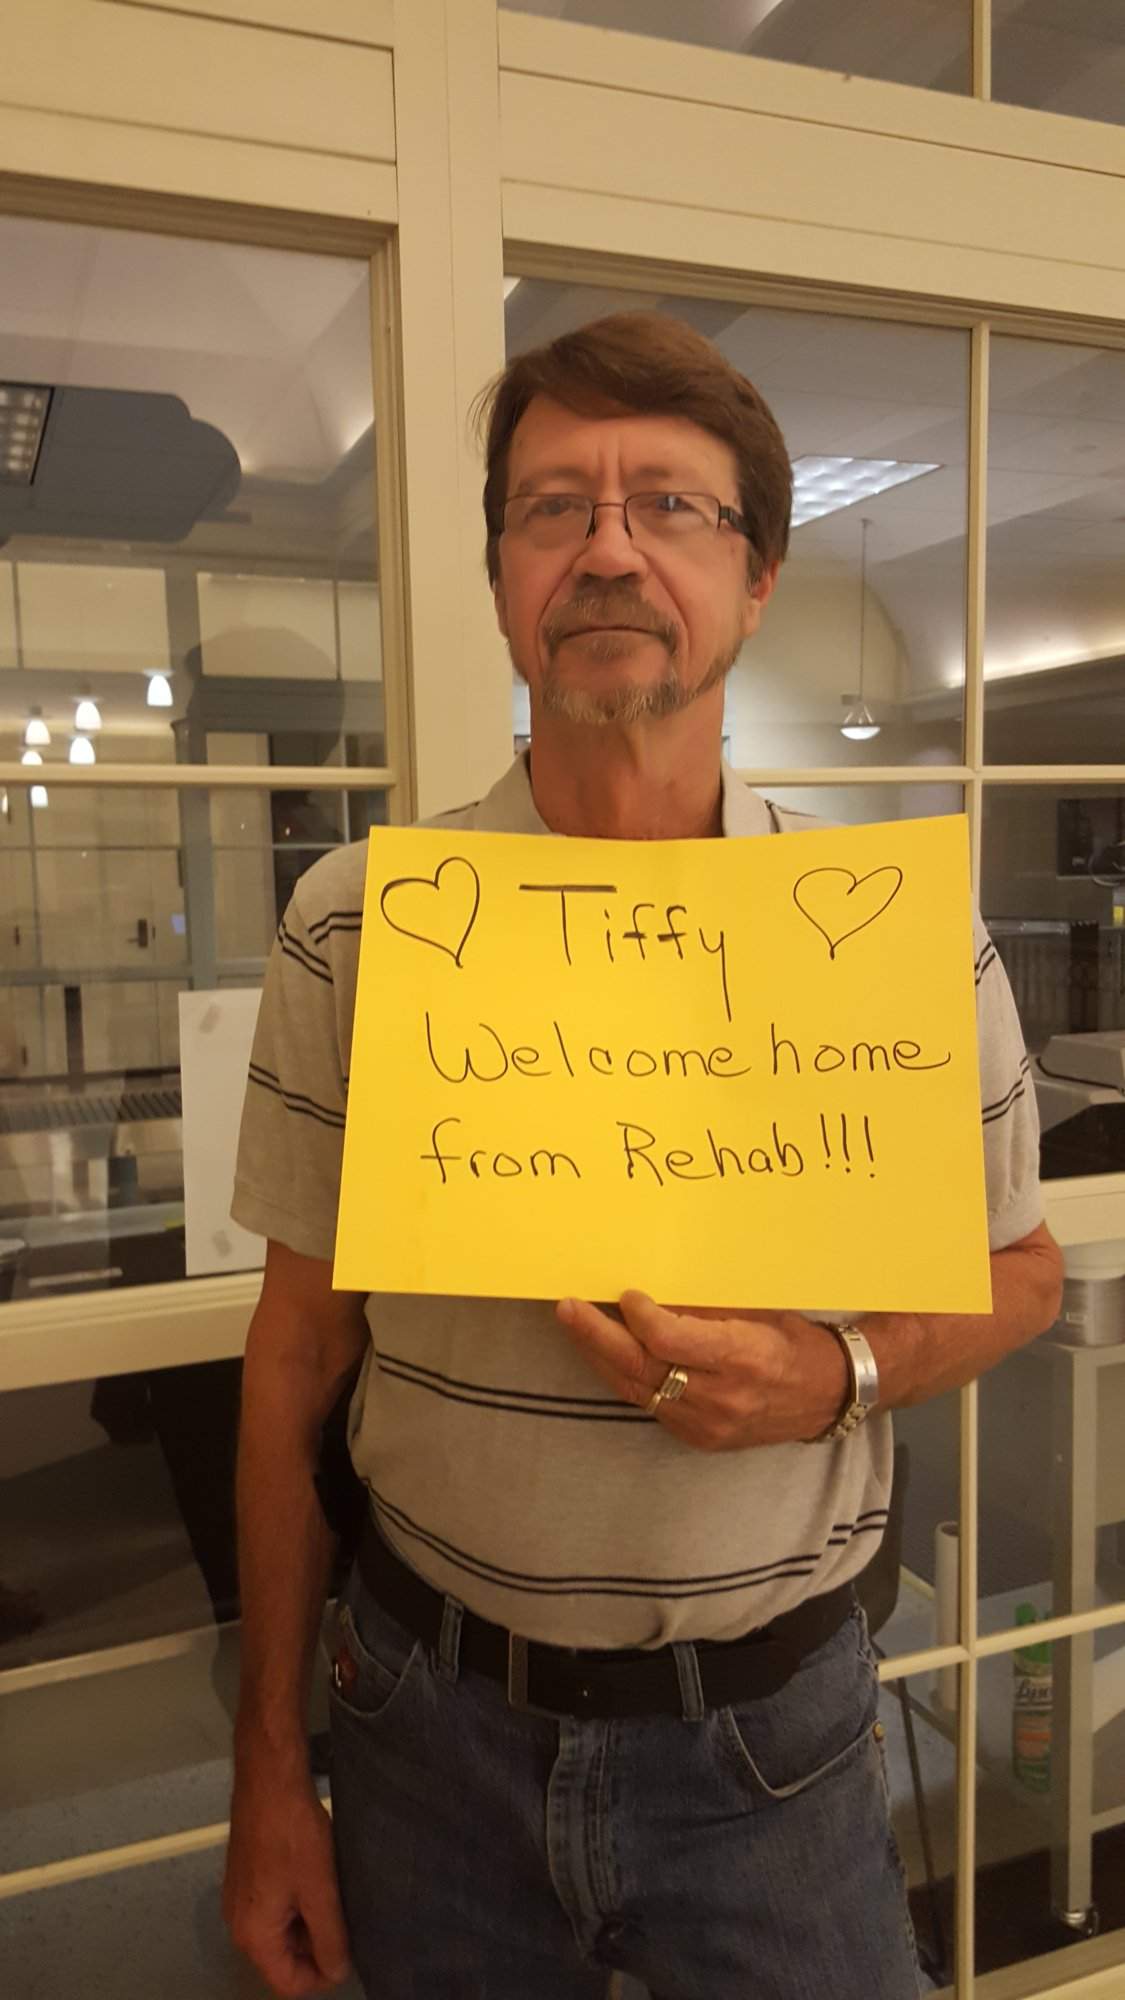 Tiffy
Welcome home
from Rehab!!!
Lysol